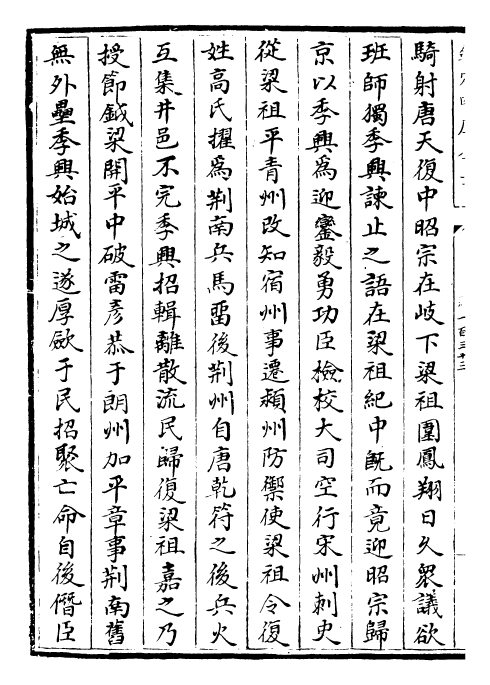 騎射唐天復中昭宗在岐下梁祖圍鳳翔日久衆議欲
班師獨季興諫止之語在梁祖紀中既而竟迎昭宗歸
京以季興為迎鑾毅勇功臣檢校大司空行宋州刺史
從梁祖平青州改知宿州事遷潁州防禦使梁祖令復
姓高氏擢為荆南兵馬留後荆州自唐乾符之後兵火
互集井邑不完季興招輯離散流民歸復梁祖嘉之乃
授節鉞梁開平中破雷彦恭于朗州加平章事荆南舊
無外壘季興始城之遂厚斂于民招聚亡命自後僭臣